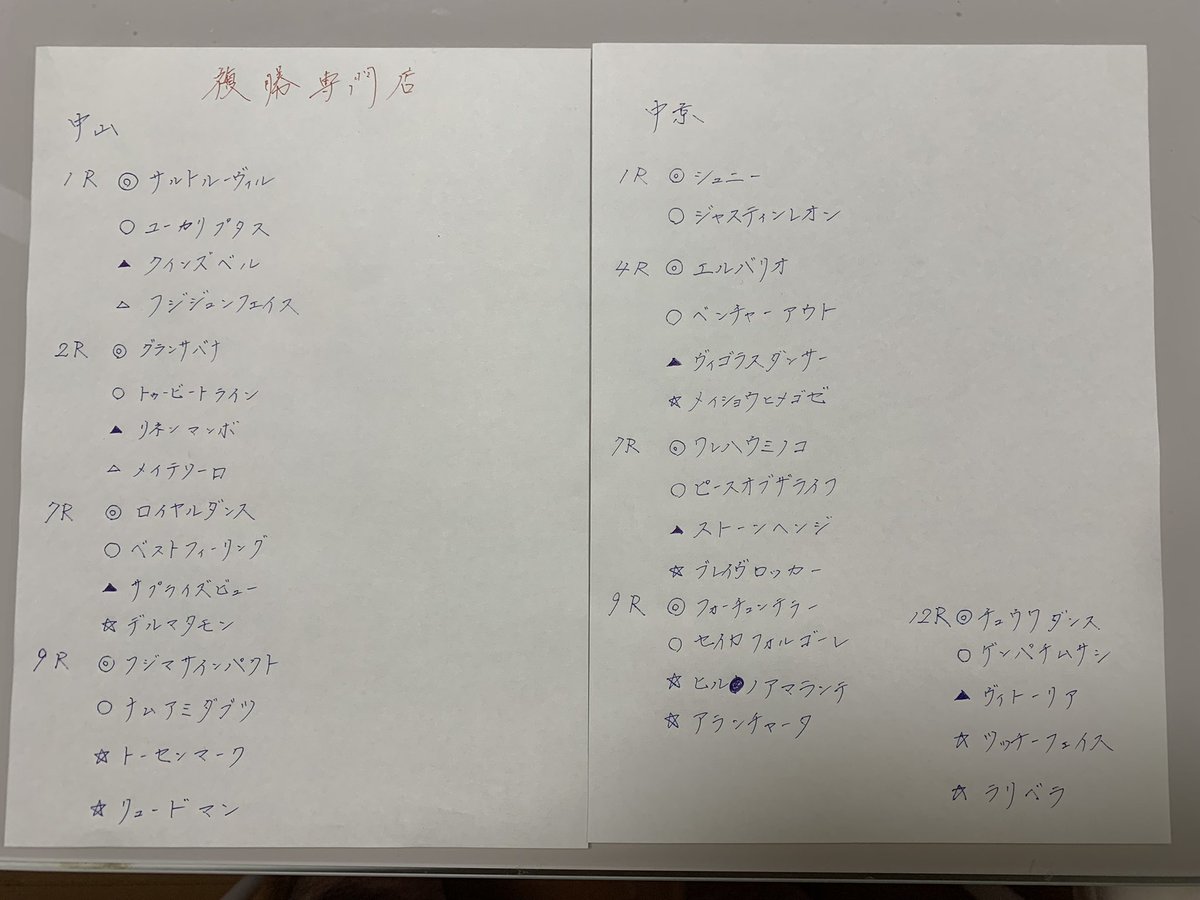 複勝専門店
中山
1R ◎ サルトルーヴィル
○ ユーカリプタス
▲ クインズベル
△ フジジュンフェイス
2R ◎ グランサバナ
○ トゥービートライン
▲ リネンマンボ
△ メイテソーロ
7R ◎ ロイヤルダンス
○ ベストフィーリング
▲ サプライズビュー
☆ デルマタモン
9R ◎ フジマサインパクト
○ ナムアミダブツ
☆ トーセンマーク
☆ リュードマン
中京
1R ◎ ジュニー
○ ジャスティンレオン
4R ◎ エルバリオ
○ ベンチャーアウト
▲ ヴィゴラスダンサー
☆ メイショウヒメゴゼ
7R ◎ ワレハウミノコ
○ ピースオブザライフ
▲ ストーンヘンジ
☆ ブレイヴロッカー
9R ◎ フォーチュンテラー
○ セイカフォルゴーレ
☆ ヒルノアマランテ
☆ アランチャータ
12R ◎ チュウワダンス
○ ゲンパチムサシ
▲ ヴィトーリア
☆ ツッチーフェイス
☆ ラリベラ